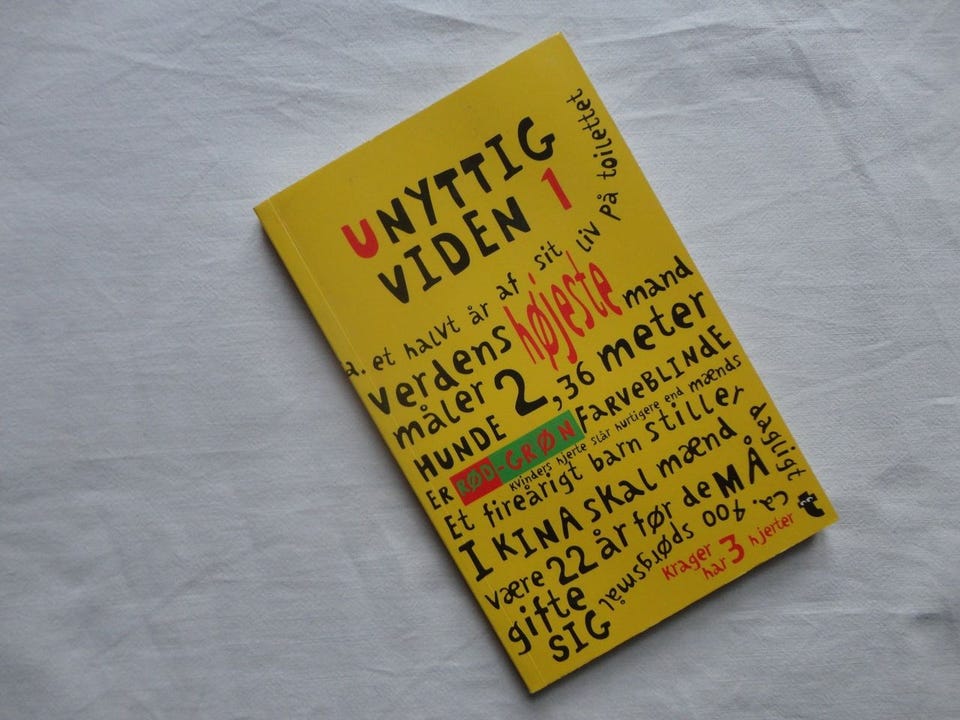 UNYTTIG
VIDEN 1
a. et halvt år af sit liv på toilettet
verdens højeste mand
måler 2,36 meter
HUNDE
ER RØD-GRØN FARVEBLINDE
Kvinders hjerte slår hurtigere end mænds
Et fireårigt barn stiller dagligt ca. 400 spørgsmål
I KINA skal mænd
være 22 år før de MÅ
gifte
SIG
Krager
har 3 hjerter